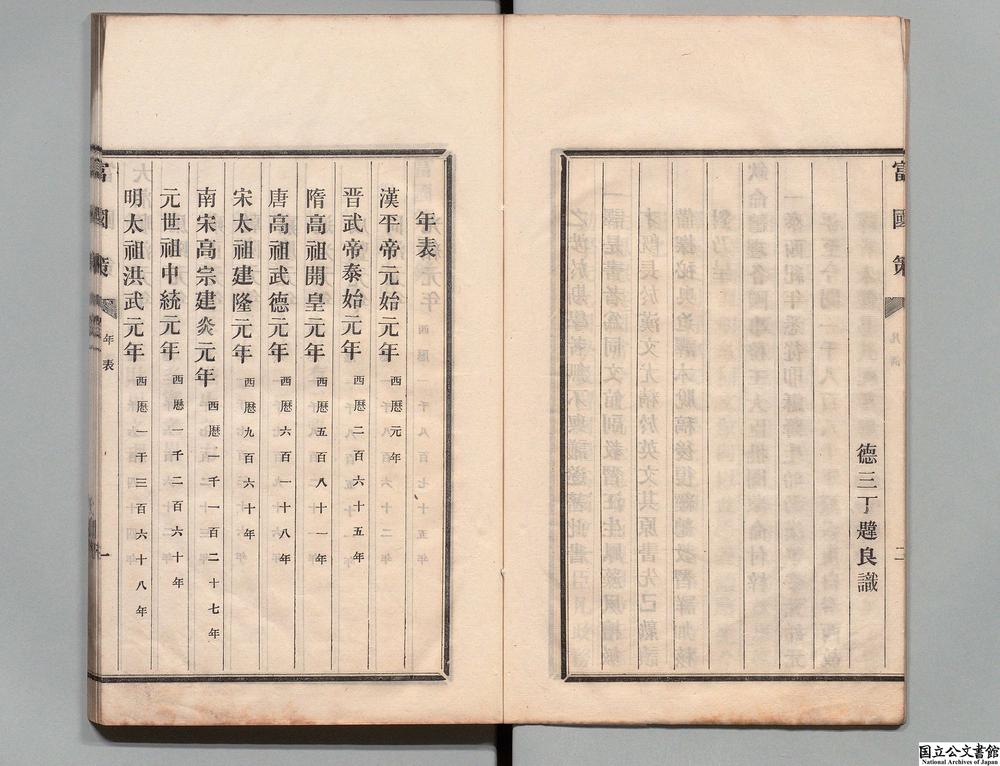 富國策
凡例
二
德三丁韙良識
年表
漢平帝元始元年 西曆元年
晉武帝泰始元年 西曆二百六十五年
隋高祖開皇元年 西曆五百八十一年
唐高祖武德元年 西曆六百一十八年
宋太祖建隆元年 西曆九百六十年
南宋高宗建炎元年 西曆一千一百二十七年
元世祖中統元年 西曆一千二百六十年
明太祖洪武元年 西曆一千三百六十八年
富國策
年表
一
国立公文書館
National Archives of Japan